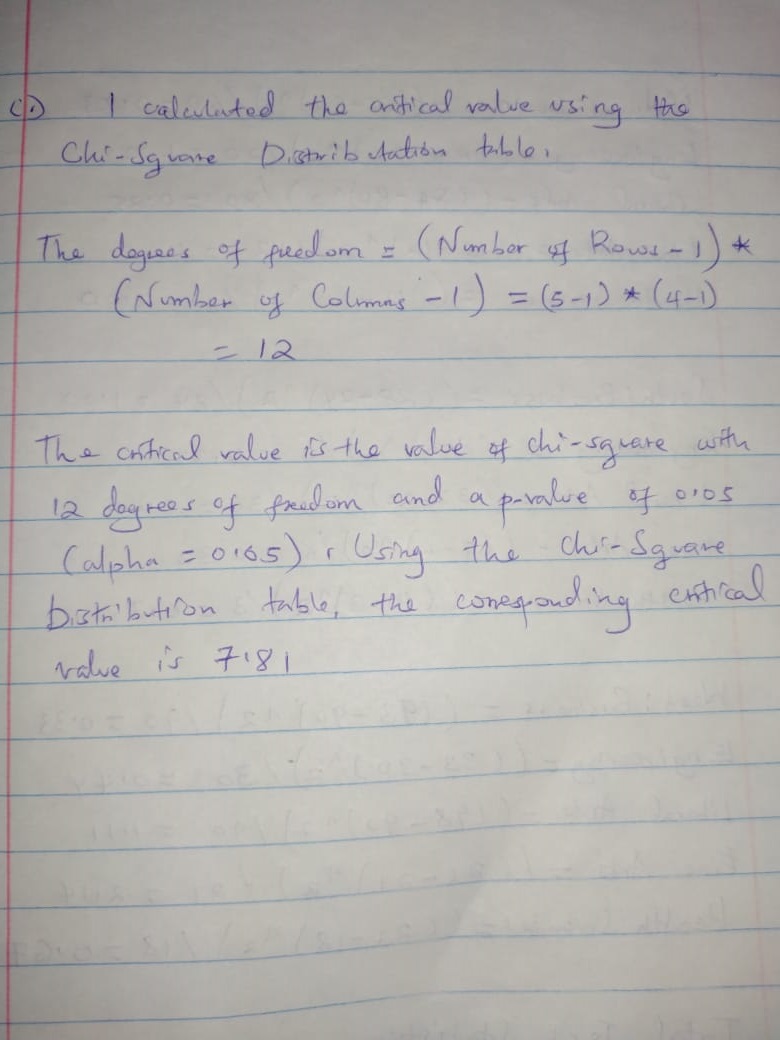 (c) I calculated the critical value using the
Chi-Square Distributation table.
The degrees of freedom = (Number of Rows - 1) *
(Number of Columns - 1) = (5-1) * (4-1)
= 12
The critical value is the value of chi-square with
12 degrees of freedom and a p-value of 0.05
(alpha = 0.05). Using the Chi-Square
Distribution table, the corresponding critical
value is 7.81